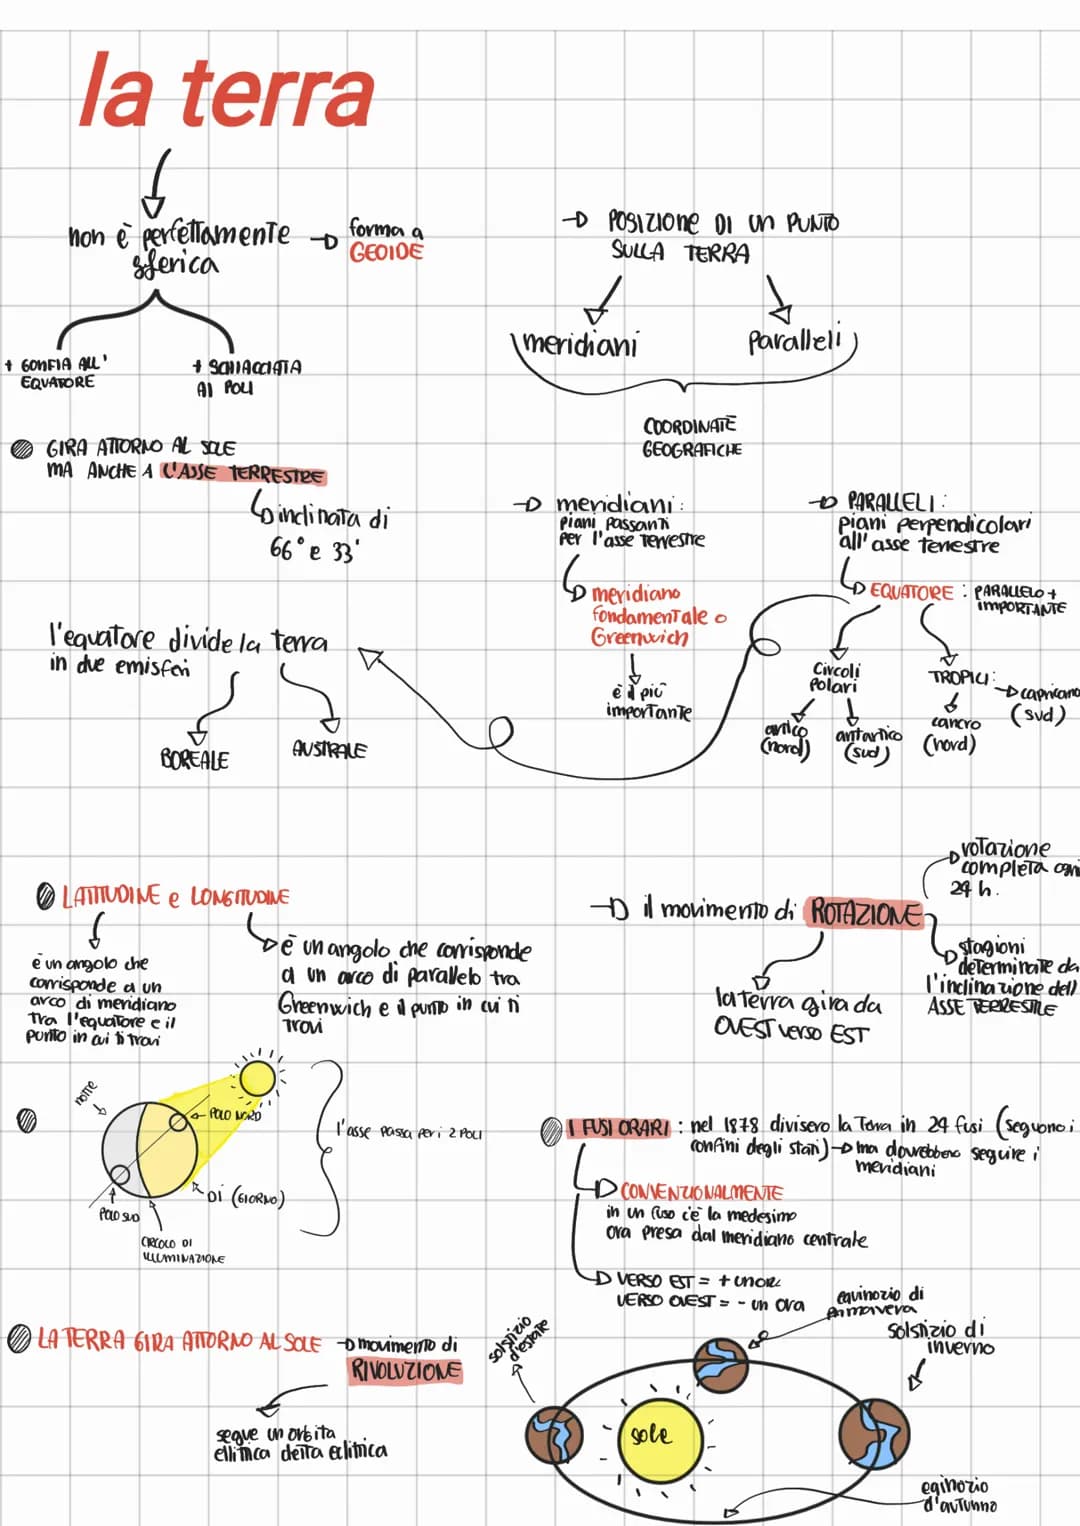 la terra
non è perfettamente
sferica
forma a
GEOIDE
+ GONFIA ALL'
EQUATORE
+ SCHIACCIATA
AI POLI
POSIZIONE DI UN PUNTO
SULLA TERRA
meridiani
Paralleli
COORDINATE
GEOGRAFICHE
GIRA ATTORNO AL SOLE
MA ANCHE A L'ASSE TERRESTRE
inclinata di
66° e 33'
meridiani:
Piani Passanti
Per l'asse terrestre
meridiano
fondamentale o
Greenwich
è il più
importante
PARALLELI:
Piani perpendicolari
all'asse terrestre
EQUATORE: PARALLELO +
IMPORTANTE
Circoli
Polari
artico
(nord)
antartico
(sud)
TROPICI:
cancro
(nord)
capricano
(sud)
l'equatore divide la terra
in due emisferi
BOREALE
AUSTRALE
LATITUDINE e LONGITUDINE
è un angolo che
corrisponde a un
arco di meridiano
tra l'equatore e il
punto in cui ti trovi
è un angolo che corrisponde
a un arco di parallelo tra
Greenwich e il punto in cui ti
trovi
il movimento di ROTAZIONE
rotazione
completa ogni
24 h.
stagioni
determinate da
l'inclinazione dell
ASSE TERRESTRE
la terra gira da
OVEST verso EST
NOTTE
POLO NORD
DÌ (GIORNO)
POLO SUD
CIRCOLO DI
ILLUMINAZIONE
l'asse passa per i 2 POLI
I FUSI ORARI: nel 1878 divisero la Terra in 24 fusi (seguono i
confini degli stati) ma dovrebbero seguire i
meridiani
CONVENZIONALMENTE
in un fuso c'è la medesimo
ora presa dal meridiano centrale
VERSO EST = + un'ora
VERSO OVEST = - un ora
LA TERRA GIRA ATTORNO AL SOLE
movimento di
RIVOLUZIONE
segue un orbita
ellittica detta eclittica
solstizio
d'estate
equinozio di
primavera
solstizio di
inverno
sole
eqinozio
d'autunno